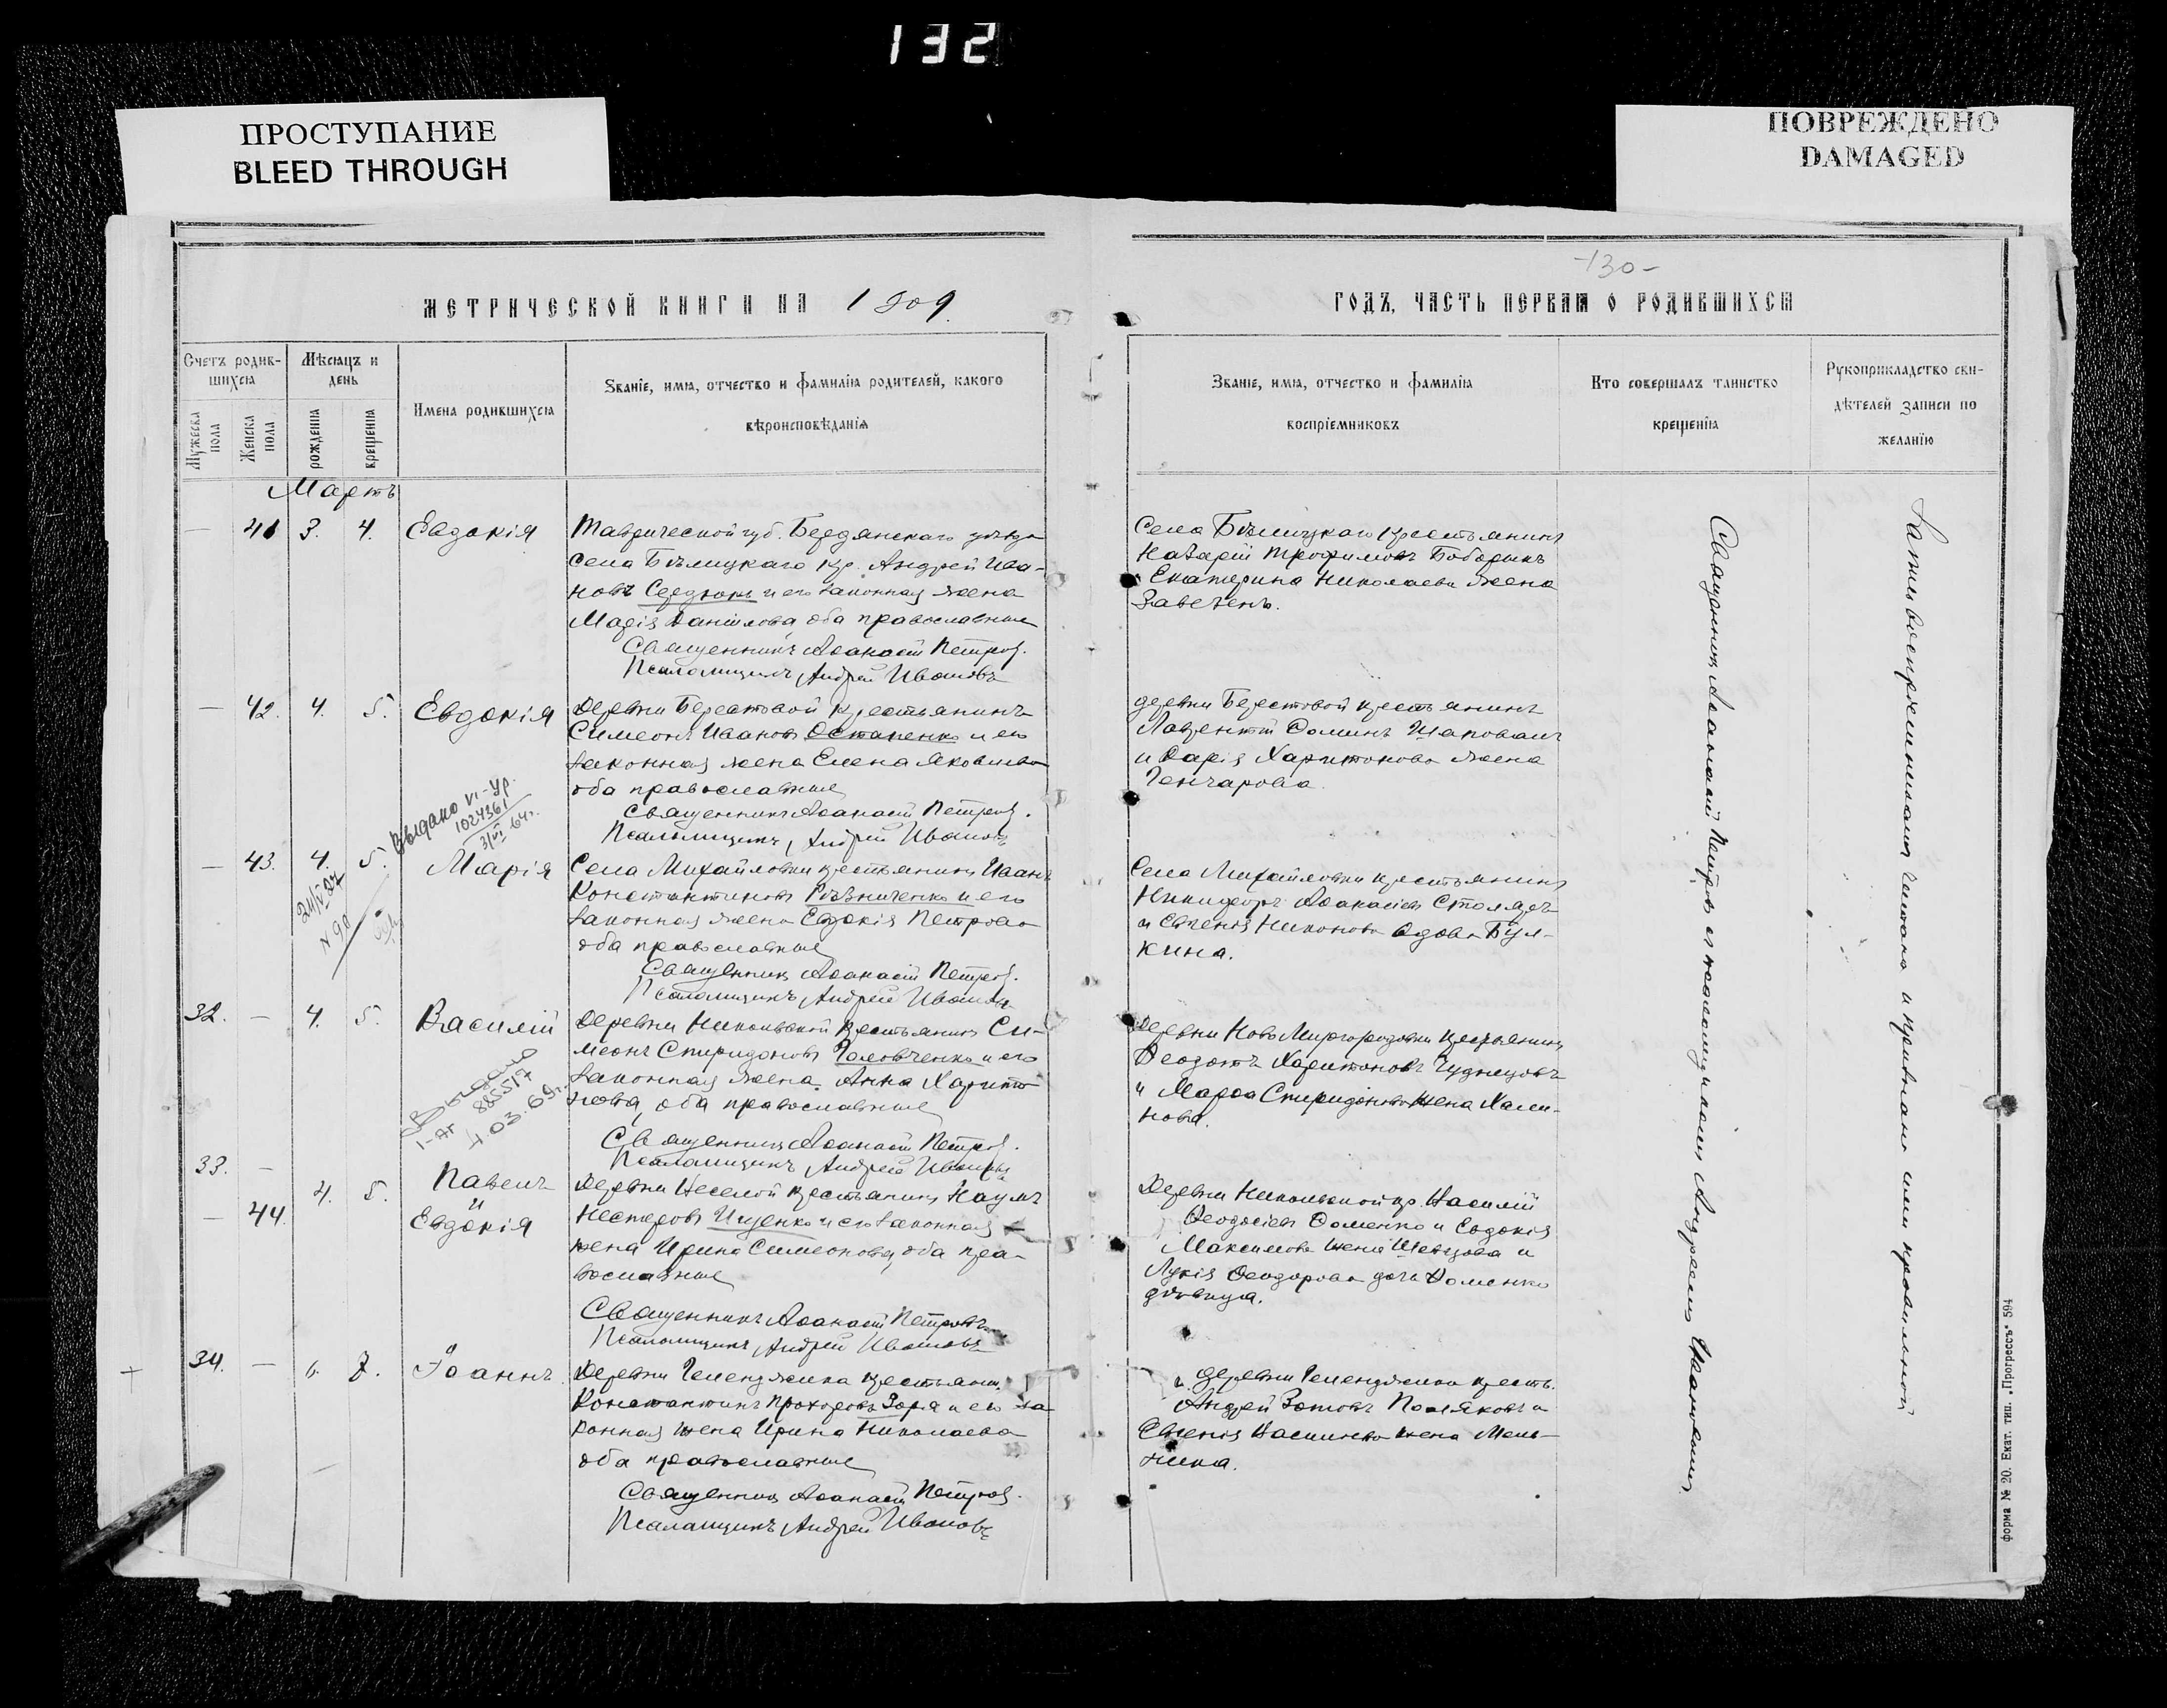 132
ПРОСТУПАНИЕ
BLEED THROUGH
ПОВРЕЖДЕНО
DAMAGED
МЕТРИЧЕСКОЙ КНИГИ НА 1909
Счетъ родив-
шихся
Мѣсяцъ и
день
Мужеска
пола
Женска
пола
рожденія
крещенія
Имена родившихся
Званіе, имя, отчество и фамилія родителей, какого
вѣроисповѣданія
Мартъ
41 3. 4. Евдокія
Таврической губ. Бердянскаго уѣзда
села Бѣлицкаго кр. Андрей Ива-
новъ Сердюкъ и его законная жена
Марія Даніилова, оба православные
Священникъ Аѳанасій Петровъ.
Псаломщикъ, Андрей Ивановъ
42. 4. 5. Евдокія
Деревни Берестовой крестьянинъ
Симеонъ Ивановъ Остапенко и его
законная жена Елена Яковлева
оба православные
Священникъ Аѳанасій Петровъ.
Псаломщикъ, Андрей Ивановъ
Выдано VI-УР.
1024361
3/VI 64г.
43. 4. 5. Марія
N 98
Села Михайловки крестьянинъ Иванъ
Константиновъ Рѣзниченко и его
законная жена Евдокія Петрова
оба православные
Священникъ Аѳанасій Петровъ.
Псаломщикъ, Андрей Ивановъ
32. 4. 5. Василій
Выдано
885517
4.03.69г.
Деревни Никольской крестьянинъ Си-
меонъ Спиридоновъ Головченко и его
законная жена Анна Харито-
нова, оба православные
Священникъ Аѳанасій Петровъ.
Псаломщикъ, Андрей Ивановъ
33. Павелъ
и
44. 4. 5. Евдокія
Деревни Веселой крестьянинъ Наумъ
Нестеровъ Ищенко и его законная
жена Ирина Симеонова, оба пра-
вославные
Священникъ Аѳанасій Петровъ
Псаломщикъ, Андрей Ивановъ
34. 6. 7. Іоаннъ.
Деревни Геленджика крестьянин.
Константинъ Прохоровъ Заря и его за-
конная жена Ирина Николаева
оба православные
Священникъ Аѳанасій Петровъ.
Псаломщикъ Андрей Ивановъ
-130-
ГОДЪ, ЧАСТЬ ПЕРВАЯ О РОДИВШИХСЯ
Званіе, имя, отчество и фамилія
воспріемниковъ
Кто совершалъ таинство
крещенія
Рукоприкладство сви-
дѣтелей записи по
желанію
Села Бѣлицкаго крестьянинъ
Назарій Трофимовъ Бободыкъ
Екатерина Николаева жена
деревни Берестовой крестьянинъ
Лаврентій Ѳоминъ Шаповалъ
и Дарія Харитонова жена
Гончарова.
Села Михайловки крестьянинъ
Никифоръ Аѳанасіевъ Столяръ
и Евгенія Никонова вдова Бул-
кина.
Деревни Ново Миргородовки крестьянинъ
Ѳеодотъ Харитоновъ
и Марѳа Спиридонова жена Хали-
нова.
Деревни Никольской кр. Василій
Ѳеодосіевъ Доменко и Евдокія
Максимова жена Шевцова и
Лукія Ѳеодорова дочь Доменко
дѣвица.
деревни Геленджика крестьян.
Андрей Зотовъ Поляковъ и
Евгенія Васильева жена Мель-
ника.
Священникъ Аѳанасій Петровъ съ псаломщикомъ Андреемъ Ивановымъ
Форма № 20. Екат. тип. „Прогрессъ" 594